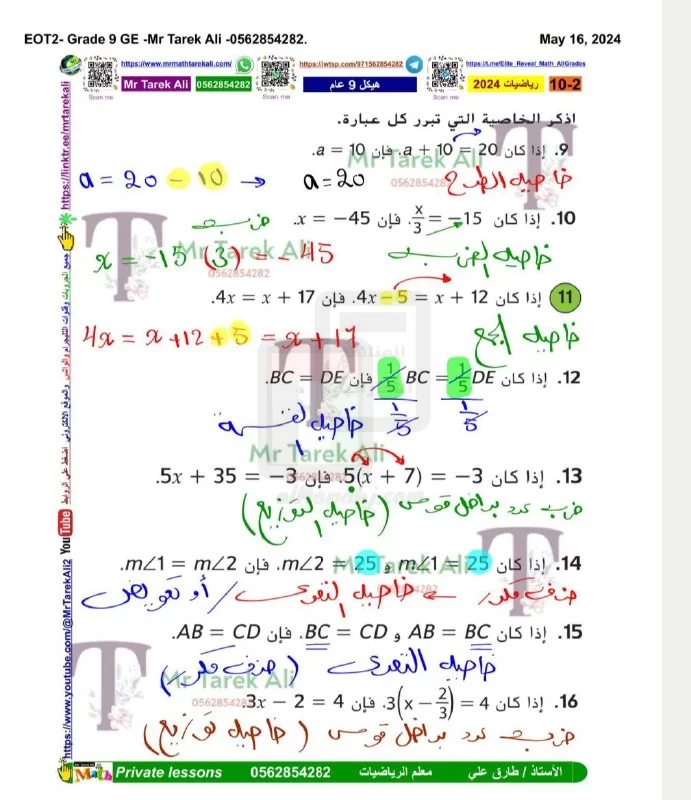 EOT2- Grade 9 GE -Mr Tarek Ali -0562854282. May 16, 2024
https://www.mrmathtarekali.com/ https://iwtsp.com/971562854282 https://t.me/Elite_Reveal_Math_AllGrades
Mr Tarek Ali 0562854282 هيكل 9 عام رياضيات 2024 10-2
Scan me Scan me Scan me
اذكر الخاصية التي تبرر كل عبارة.
9. إذا كان a + 10 = 20، فإن a = 10.
خاصيه الطرح a = 20 - 10 → a = 20
10. إذا كان x/3 = −15، فإن x = −45.
ضرب
خاصيه الضرب x = -15 (3) = -45
11 إذا كان 4x − 5 = x + 12، فإن 4x = x + 17.
خاصيه الجمع 4x = x + 12 + 5 = x + 17
12. إذا كان 1/5 BC = 1/5 DE فإن BC = DE.
1/5 1/5
خاصيه القسمة
13. إذا كان 5(x + 7) = −3، فإن 5x + 35 = −3.
ضرب عدد بداخل قوس (خاصيه التوزيع)
14. إذا كان m∠1 = 25 و m∠2 = 25، فإن m∠1 = m∠2.
حذف مكرر خاصيه التعدى / أو تعويض
15. إذا كان AB = BC و BC = CD، فإن AB = CD.
خاصيه التعدى (حذف مكرر)
16. إذا كان 3(x − 2/3) = 4 فإن 3x − 2 = 4.
ضرب عدد بداخل قوس (خاصيه توزيع)
Mr Tarek Ali
0562854282
https://linktr.ee/mrtarekali
جميع الجروبات وقنوات التليجرام والواتس والموقع الالكتروني اضغط على الروابط
https://www.youtube.com/@MrTarekAli2 YouTube
Math Private lessons 0562854282 معلم الرياضيات الأستاذ / طارق علي